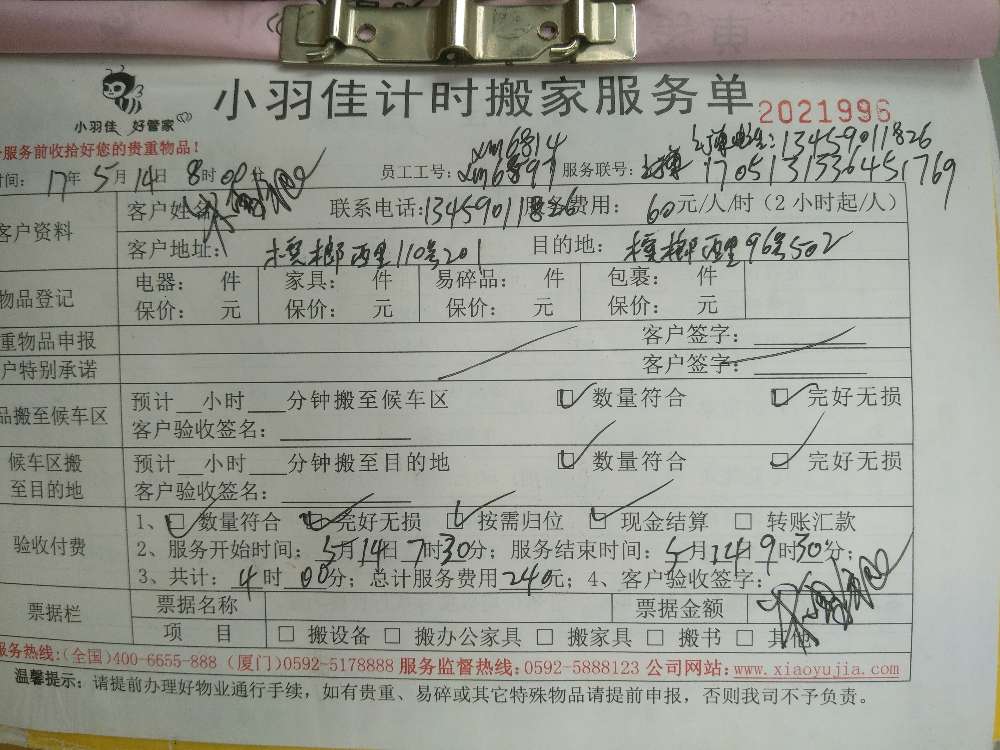 小羽佳 好管家
小羽佳计时搬家服务单 2021996
服务前收拾好您的贵重物品！ XM6814 13459011826
时间：17年5月14日8时00分 员工工号：XM6897 服务联号：17051313364517​69
客户资料 客户姓名： 联系电话：13459011826 服务费用：60元/人/时（2小时起/人）
客户地址：槟榔西里110号201 目的地：槟榔西里96号502
物品登记 电器： 件 家具： 件 易碎品： 件 包裹： 件
保价： 元 保价： 元 保价： 元 保价： 元
重物品申报 客户签字：
户特别承诺 客户签字：
品搬至候车区 预计__小时___分钟搬至候车区 ☑ 数量符合 ☑ 完好无损
客户验收签名：
候车区搬至目的地 预计__小时___分钟搬至目的地 ☑ 数量符合 ☑ 完好无损
客户验收签名：
验收付费 1、☑ 数量符合 ☑ 完好无损 ☑ 按需归位 ☑ 现金结算 □ 转账汇款
2、服务开始时间：5月14日7时30分；服务结束时间：5月14日9时30分；
3、共计：4时00分；总计服务费用240元；4、客户验收签字：
票据栏 票据名称 票据金额
项 目 □ 搬设备 □ 搬办公家具 □ 搬家具 □ 搬书 □ 其他
服务热线：(全国)400-6655-888 (厦门)0592-5178888 服务监督热线：0592-5888123 公司网站：www.xiaoyujia.com
温馨提示：请提前办理好物业通行手续，如有贵重、易碎或其它特殊物品请提前申报，否则我司不予负责。